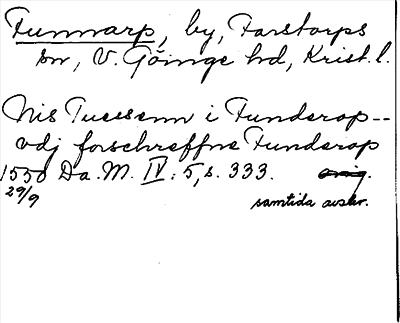 Funnarp, by, Farstorps
sn, V. Göinge hd, Krist. l.
Nis Tuessenn i Funderop --
vdj forschreffne Funderop
1550 Da. M. IV: 5, s. 333. orig.
29/9 samtida avskr.